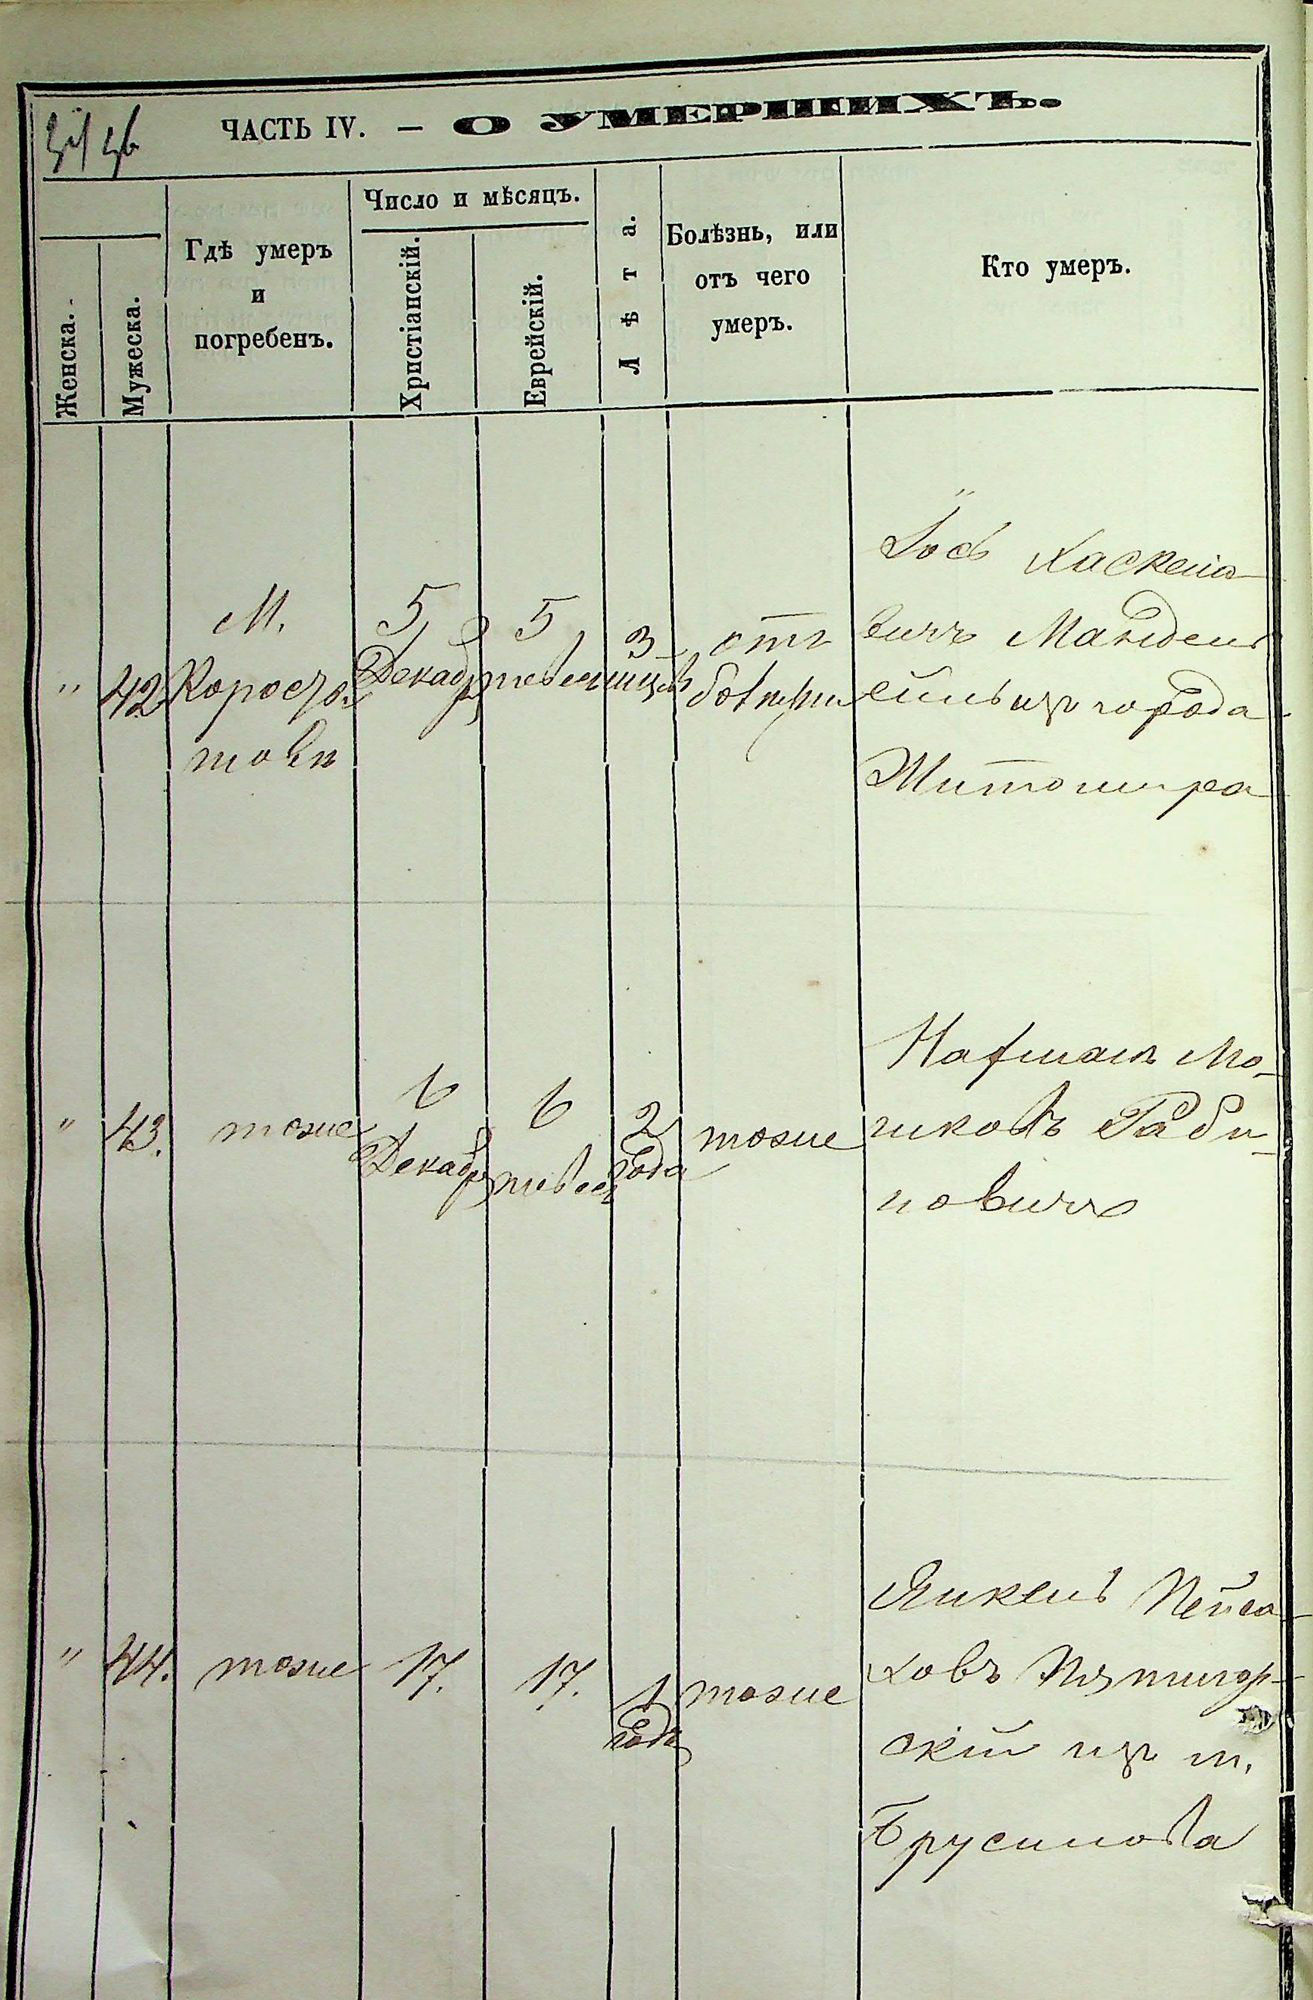 ЧАСТЬ IV. — О УМЕРШИХЪ.
Женска.
Мужеска.
Гдѣ умеръ
и
погребенъ.
Число и мѣсяцъ.
Христіанскій.
Еврейскій.
Лѣта.
Болѣзнь, или
отъ чего
умеръ.
Кто умеръ.
"
42
М.
Коросты-
шовѣ
5
Декабр
5
тевес
3
отъ
Іось Хаскелио-
вичъ Мандель
изъ города
Житомира
"
43.
тоже
6
Декабр
6
тевес
2
года
тоже
Нафтали Мо-
шковъ Раби-
новичъ
"
44.
тоже
17.
17.
1
года
тоже
Янкель Пейса-
ховъ Пятигор-
скій изъ м.
Брусилова